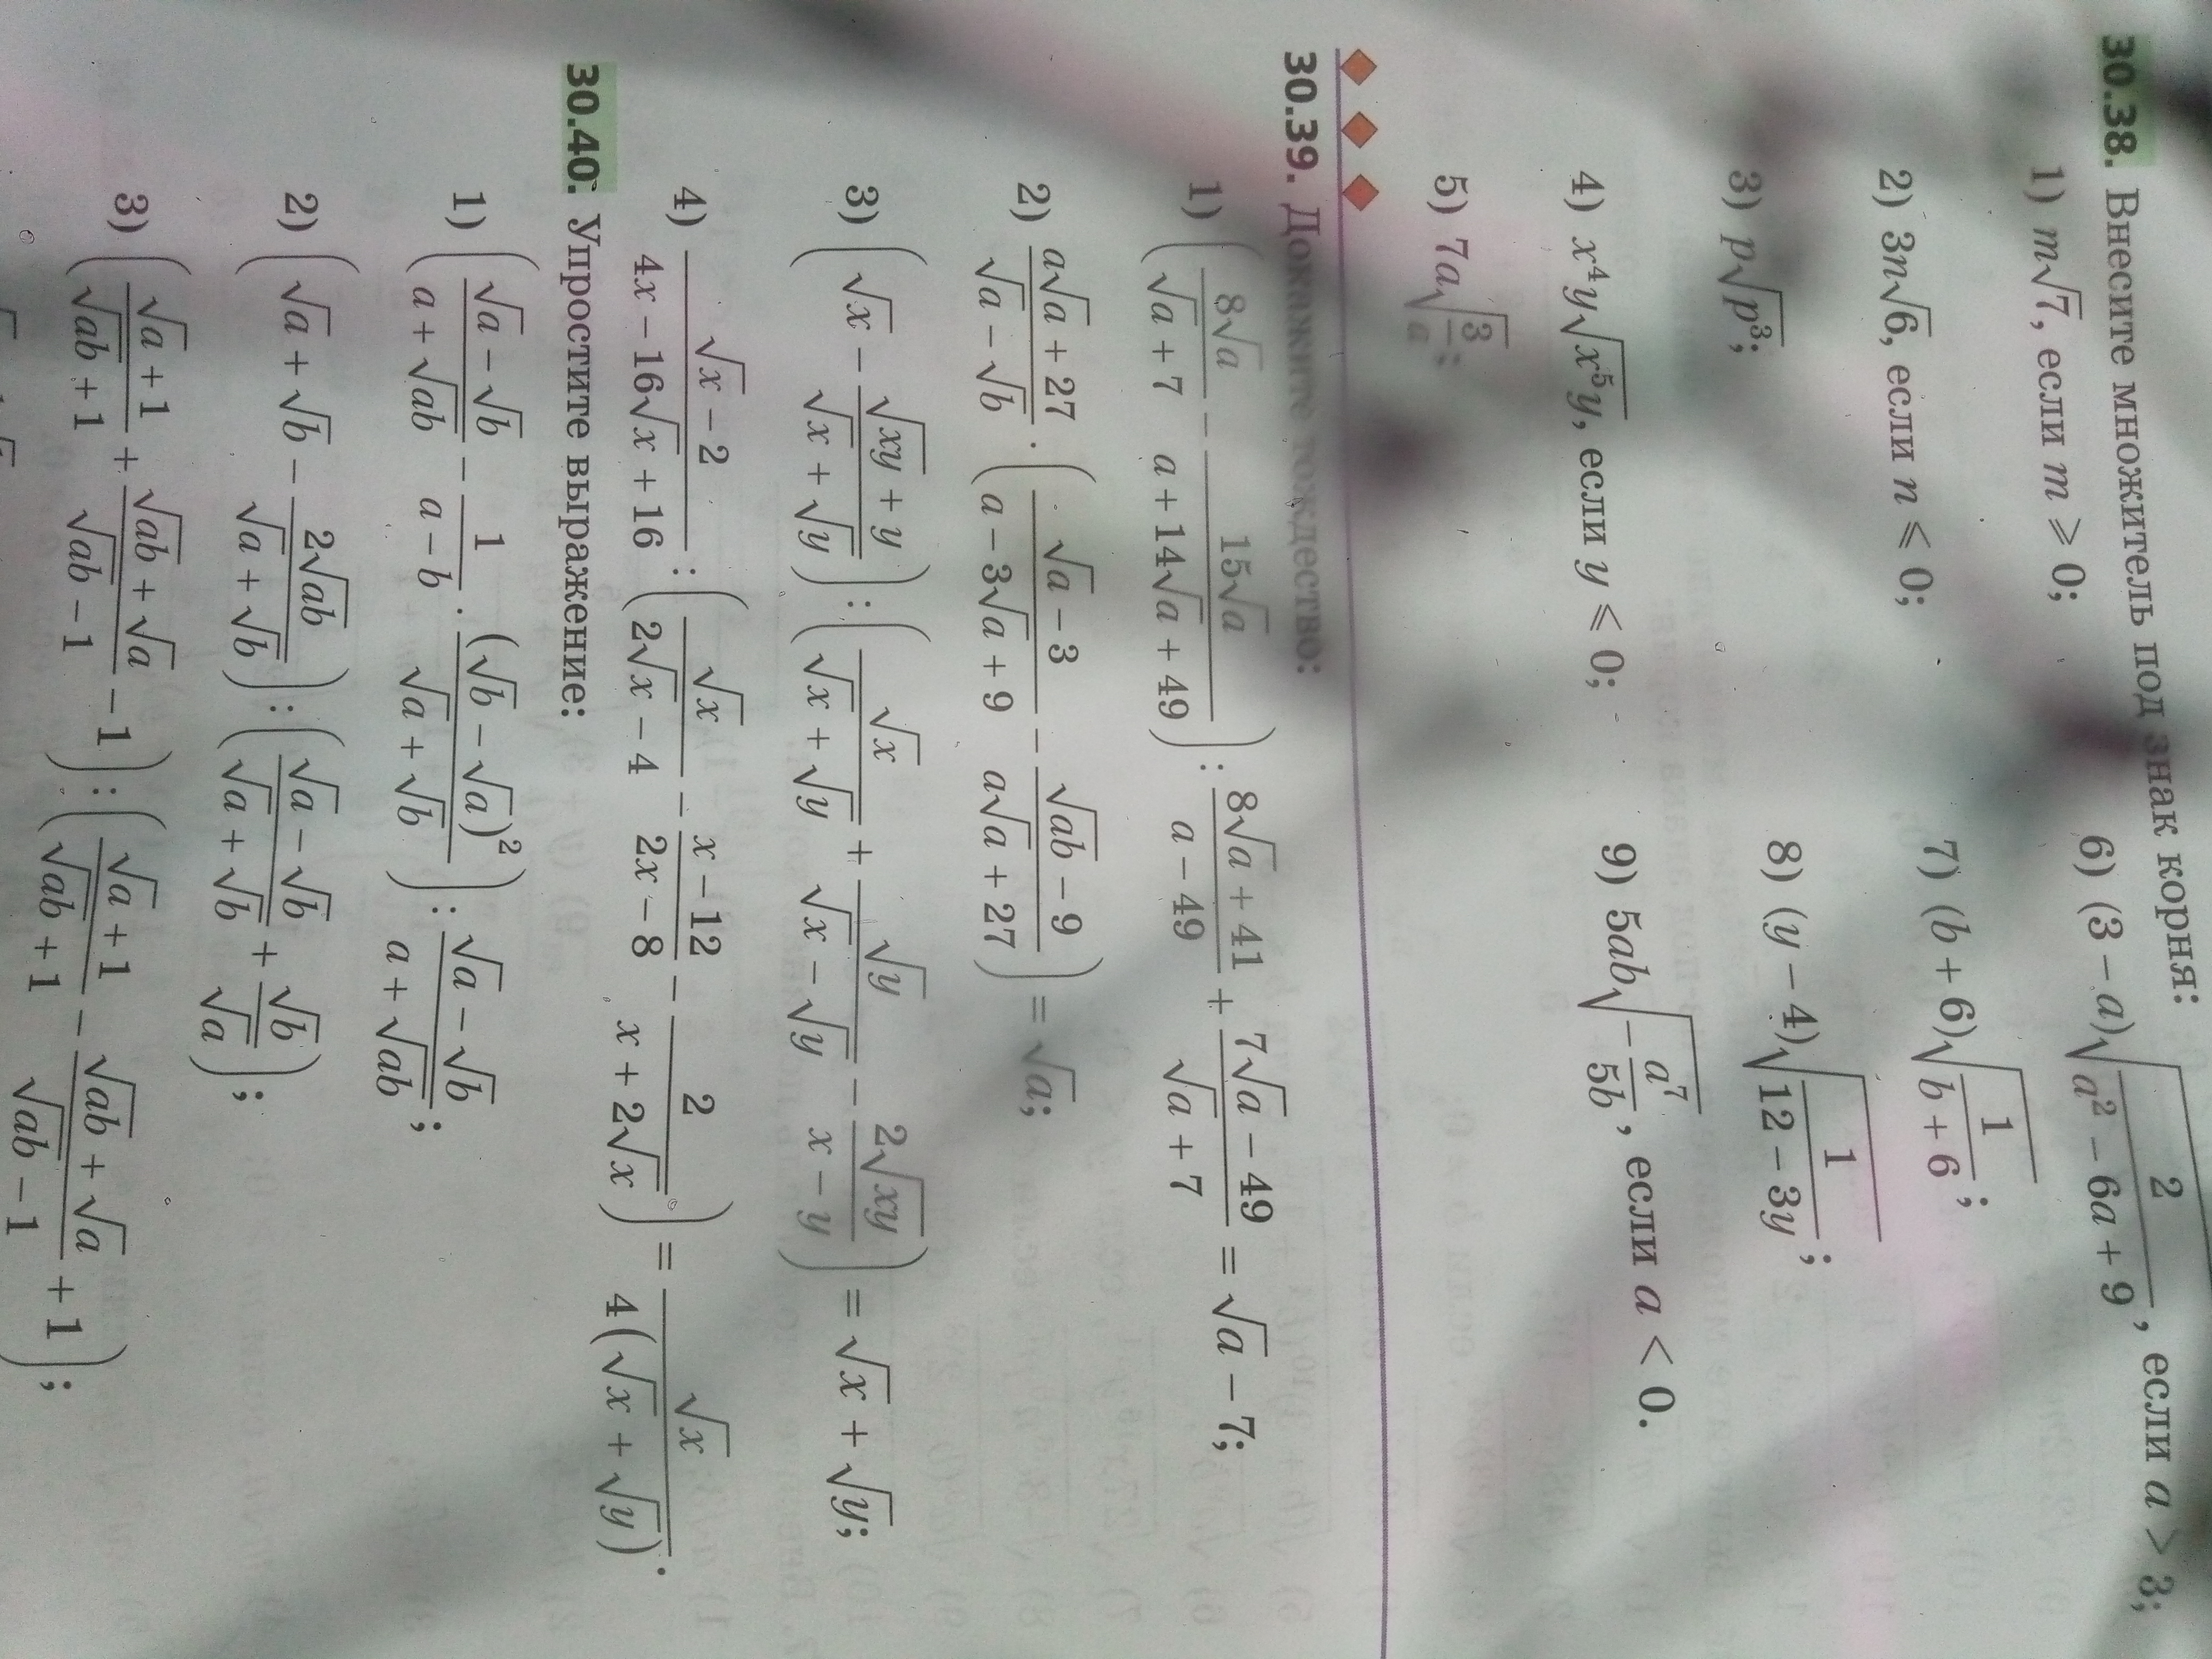 30.38. Внесите множитель под знак корня:
1) m√7, если m ⩾ 0;
2) 3n√6, если n ⩽ 0;
3) p√(p³);
4) x⁴y√(x⁵y), если y ⩽ 0;
5) 7a√(3/a);
6) (3 − a)√(2/(a² − 6a + 9)), если a > 3;
7) (b + 6)√(1/(b + 6));
8) (y − 4)√(1/(12 − 3y));
9) 5ab√(−a⁷/(5b)), если a < 0.
30.39. Докажите тождество:
1) (8√a/(√a + 7) − 15√a/(a + 14√a + 49)) : (8√a + 41)/(a − 49) + (7√a − 49)/(√a + 7) = √a − 7;
2) (a√a + 27)/(√a − √b) · ((√a − 3)/(a − 3√a + 9) − (√(ab) − 9)/(a√a + 27)) = √a;
3) (√x − (√(xy) + y)/(√x + √y)) : (√x/(√x + √y) + √y/(√x − √y) − 2√(xy)/(x − y)) = √x + √y;
4) (√x − 2)/(4x − 16√x + 16) : (√x/(2√x − 4) − (x − 12)/(2x − 8) − 2/(x + 2√x)) = √x/(4(√x + √y)).
30.40. Упростите выражение:
1) ((√a − √b)/(a + √(ab)) − 1/(a − b) · (√b − √a)²/(√a + √b)) : (√a − √b)/(a + √(ab));
2) (√a + √b − 2√(ab)/(√a + √b)) : ((√a − √b)/(√a + √b) + √b/√a);
3) ((√a + 1)/(√(ab) + 1) + (√(ab) + √a)/(√(ab) − 1) − 1) : ((√a + 1)/(√(ab) + 1) − (√(ab) + √a)/(√(ab) − 1) + 1);